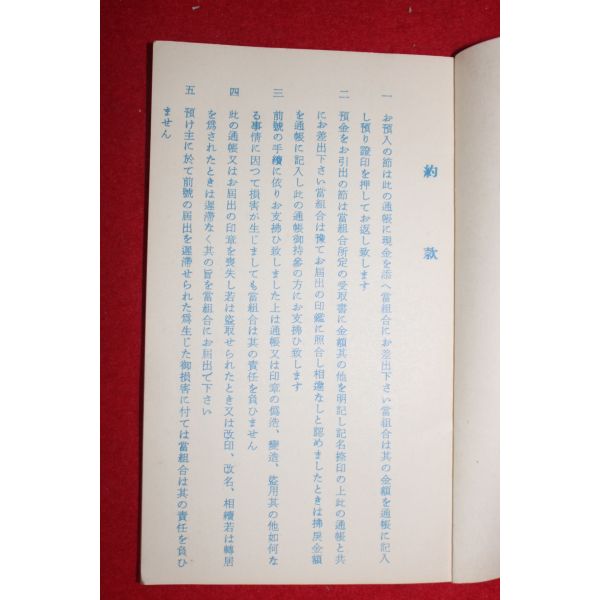 約款
一 お預入の節は此の通帳に現金を添へ當組合にお差出下さい當組合は其の金額を通帳に記入
し預り證印を押してお返し致します
二 預金をお引出の節は當組合所定の受取書に金額其の他を明記し記名捺印の上此の通帳と共
にお差出下さい當組合は豫てお届出の印鑑に照合し相違なしと認めましたときは拂戻金額
を通帳に記入し此の通帳御持參の方にお支拂ひ致します
三 前號の手續に依りお支拂ひ致しました上は通帳又は印章の僞造、變造、盜用其の他如何な
る事情に因つて損害が生じましても當組合は其の責任を負ひません
四 此の通帳又はお届出の印章を喪失し若は盜取せられたとき又は改印、改名、相續若は轉居
を爲されたときは遲滯なく其の旨を當組合にお届出で下さい
五 預け主に於て前號の届出を遲滯せられた爲生じた御損害に付ては當組合は其の責任を負ひ
ません